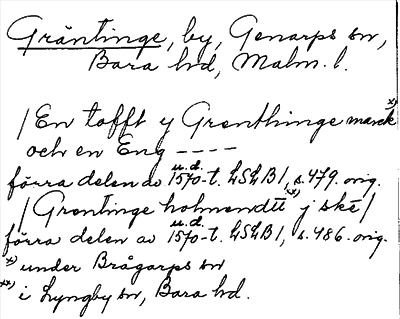 Gräntinge, by, Genarps sn,
Bara hd, Malm. l.
/En tofft y Grenthinge marck x)
och en Eng ----
förra delen av u.d. 1570-t. LSLB1, s. 479. orig.
/Grentinge holmendtt xx) j ske/
förra delen av u.d. 1570-t. LSLB1, s. 486. orig.
x) under Brågarps sn
xx) i Lyngby sn, Bara hd.